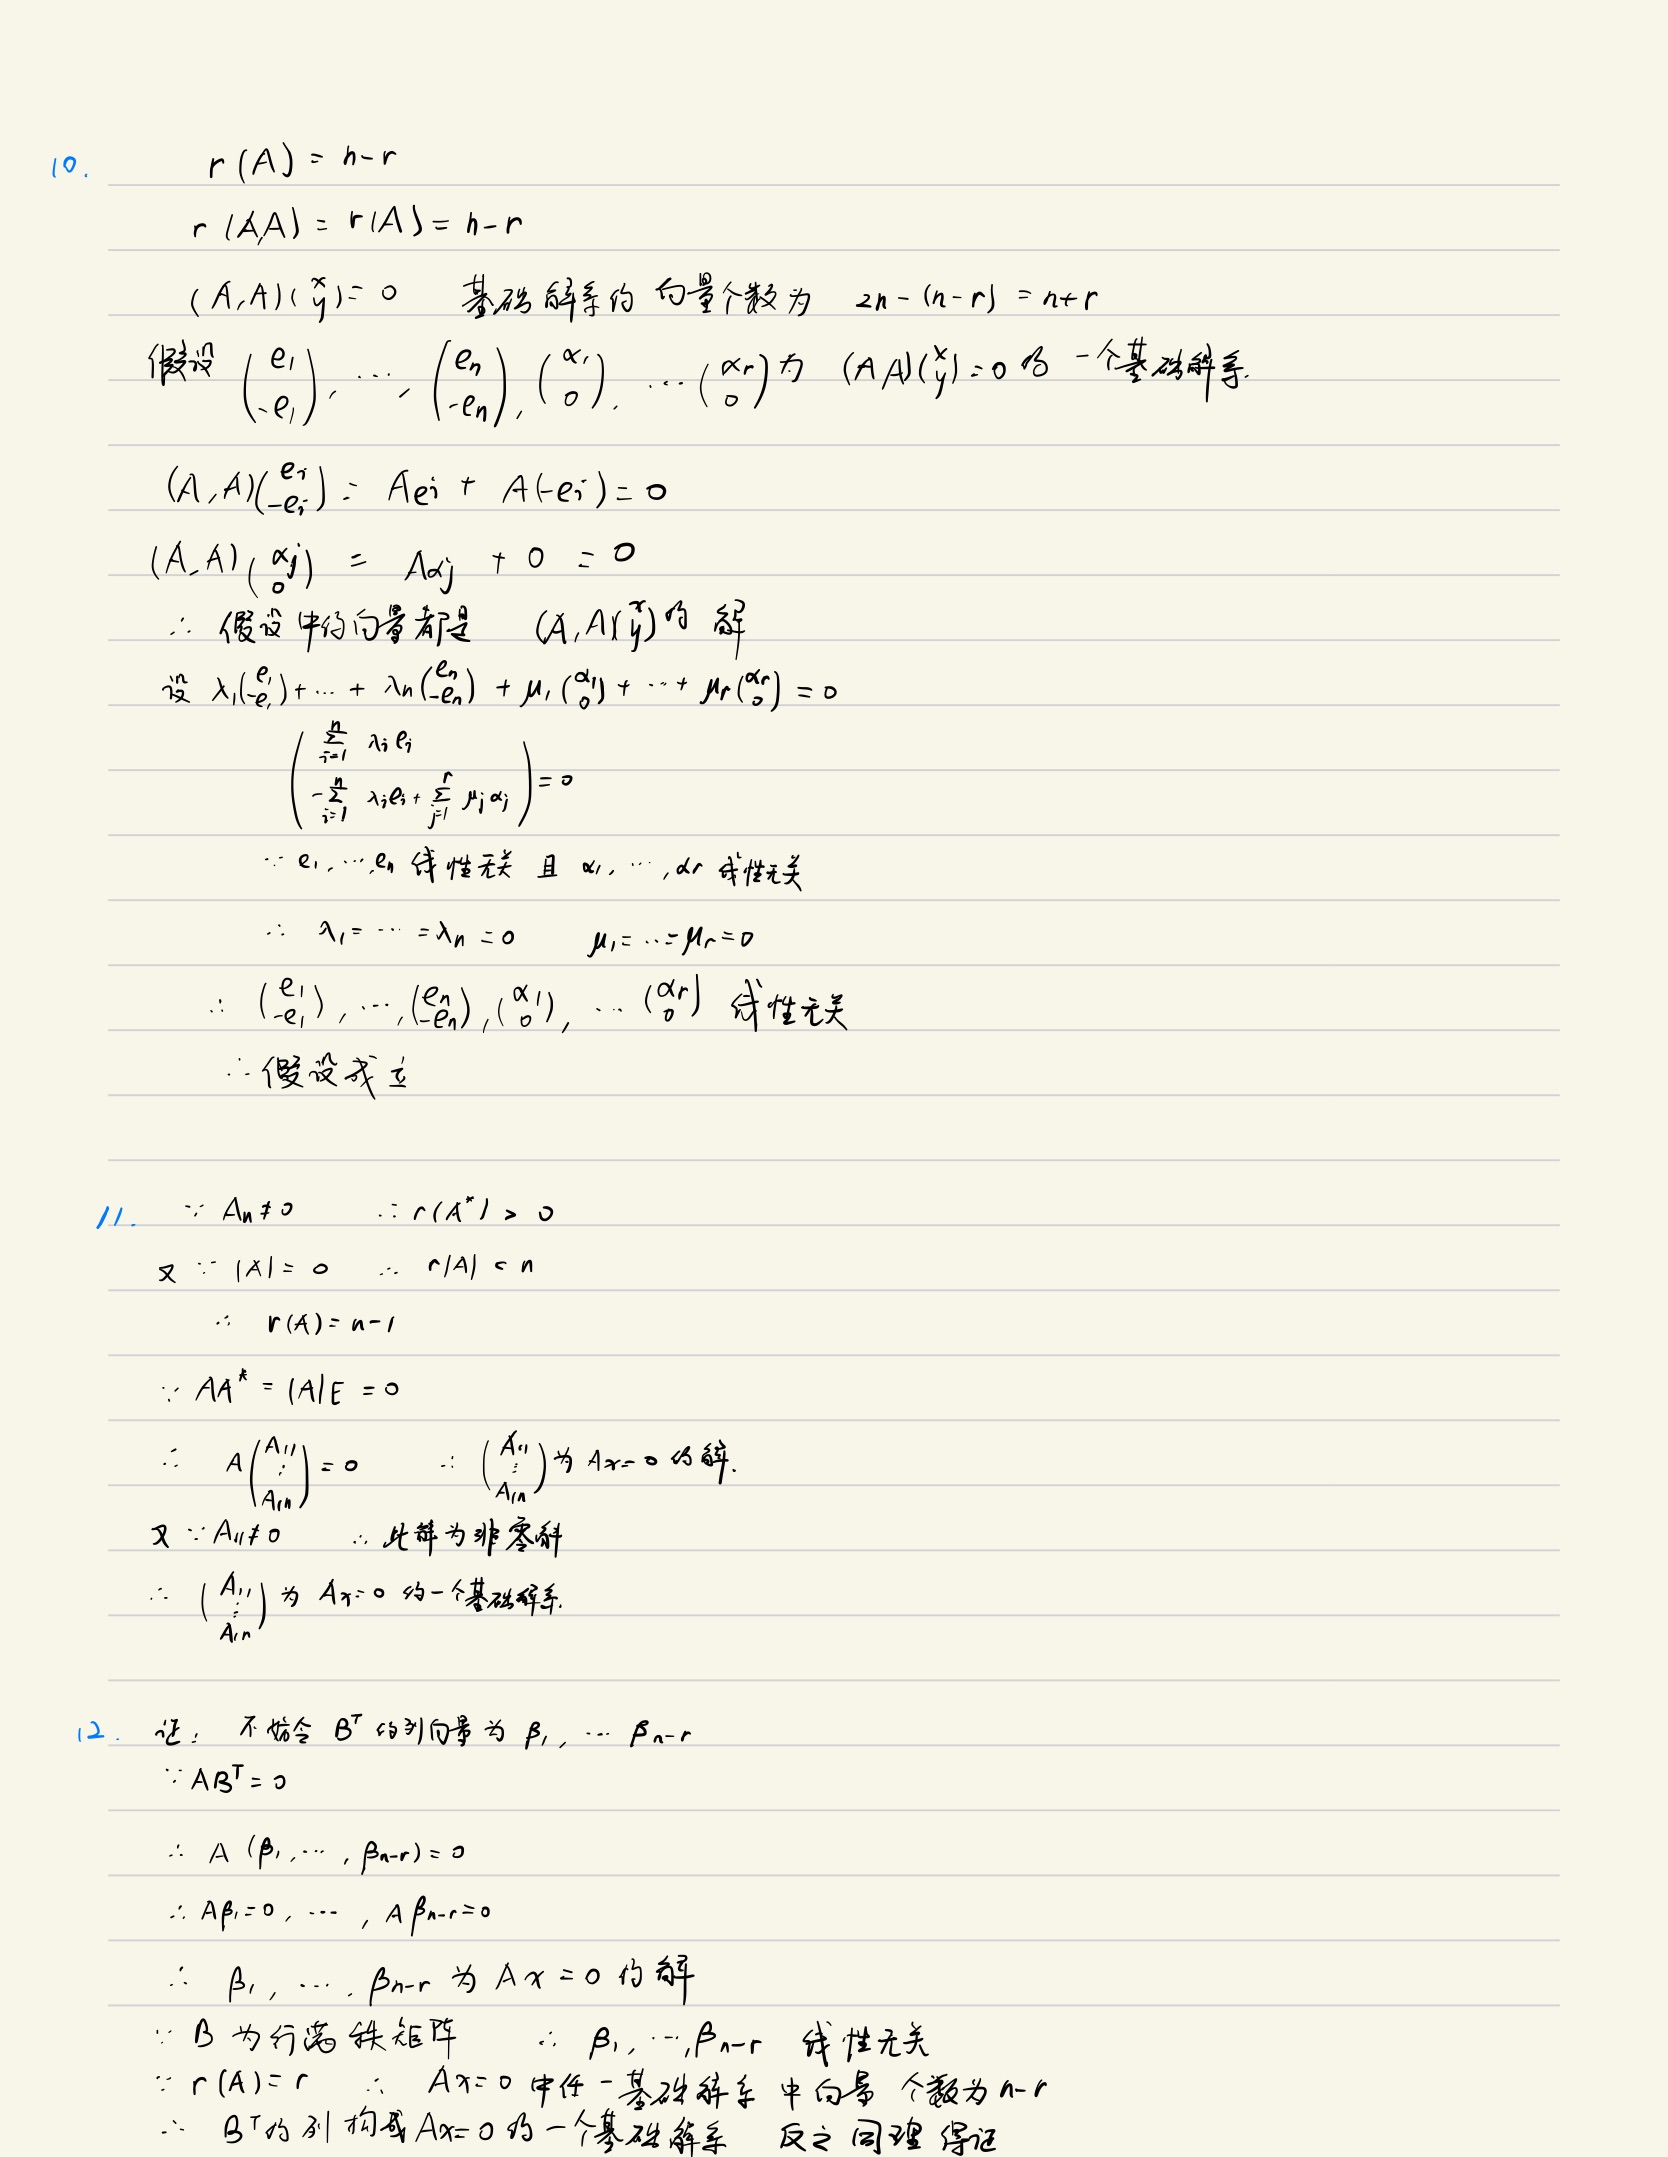 10. r(A) = n-r
r(A,A) = r(A) = n-r
(A,A)(x y) = 0 基础解系的向量个数为 2n-(n-r) = n+r
假设 (e₁ -e₁), …, (eₙ -eₙ), (α₁ 0), …(αr 0) 为 (A A)(x y)=0 的 一个基础解系.
(A,A)(eᵢ -eᵢ) = Aeᵢ + A(-eᵢ) = 0
(A,A)(αⱼ 0) = Aαⱼ + 0 = 0
∴ 假设中的向量都是 (A,A)(x y) 的 解
设 λ₁(e₁ -e₁)+…+ λₙ(eₙ -eₙ) + μ₁(α₁ 0) + …+ μr(αr 0) = 0
( Σᵢ₌₁ⁿ λᵢeᵢ
-Σᵢ₌₁ⁿ λᵢeᵢ + Σⱼ₌₁ʳ μⱼαⱼ ) = 0
∵ e₁,…,eₙ 线性无关 且 α₁,…,αr 线性无关
∴ λ₁=…=λₙ=0 μ₁=…=μr=0
∴ (e₁ -e₁),…,(eₙ -eₙ),(α₁ 0), …(αr 0) 线性无关
∴ 假设成立
11. ∵ A₁₁≠0 ∴ r(A*) > 0
又 ∵ |A| = 0 ∴ r|A| < n
∴ r(A) = n-1
∵ AA* = |A|E = 0
∴ A(A₁₁ ⋮ A₁ₙ) = 0 ∴ (A₁₁ ⋮ A₁ₙ) 为 Ax=0 的解.
又 ∵ A₁₁≠0 ∴ 此解为非零解
∴ (A₁₁ ⋮ A₁ₙ) 为 Ax=0 的一个基础解系.
12. 证: 不妨令 Bᵀ 的列向量为 β₁, … βn-r
∵ ABᵀ = 0
∴ A (β₁,…,βn-r) = 0
∴ Aβ₁=0, …, Aβn-r=0
∴ β₁, …, βn-r 为 Ax = 0 的解
∵ B 为行满秩矩阵 ∴ β₁,…,βn-r 线性无关
∵ r(A)=r ∴ Ax=0 中任一基础解系中向量 个数为 n-r
∴ Bᵀ的列构成 Ax=0 的一个基础解系 反之同理得证